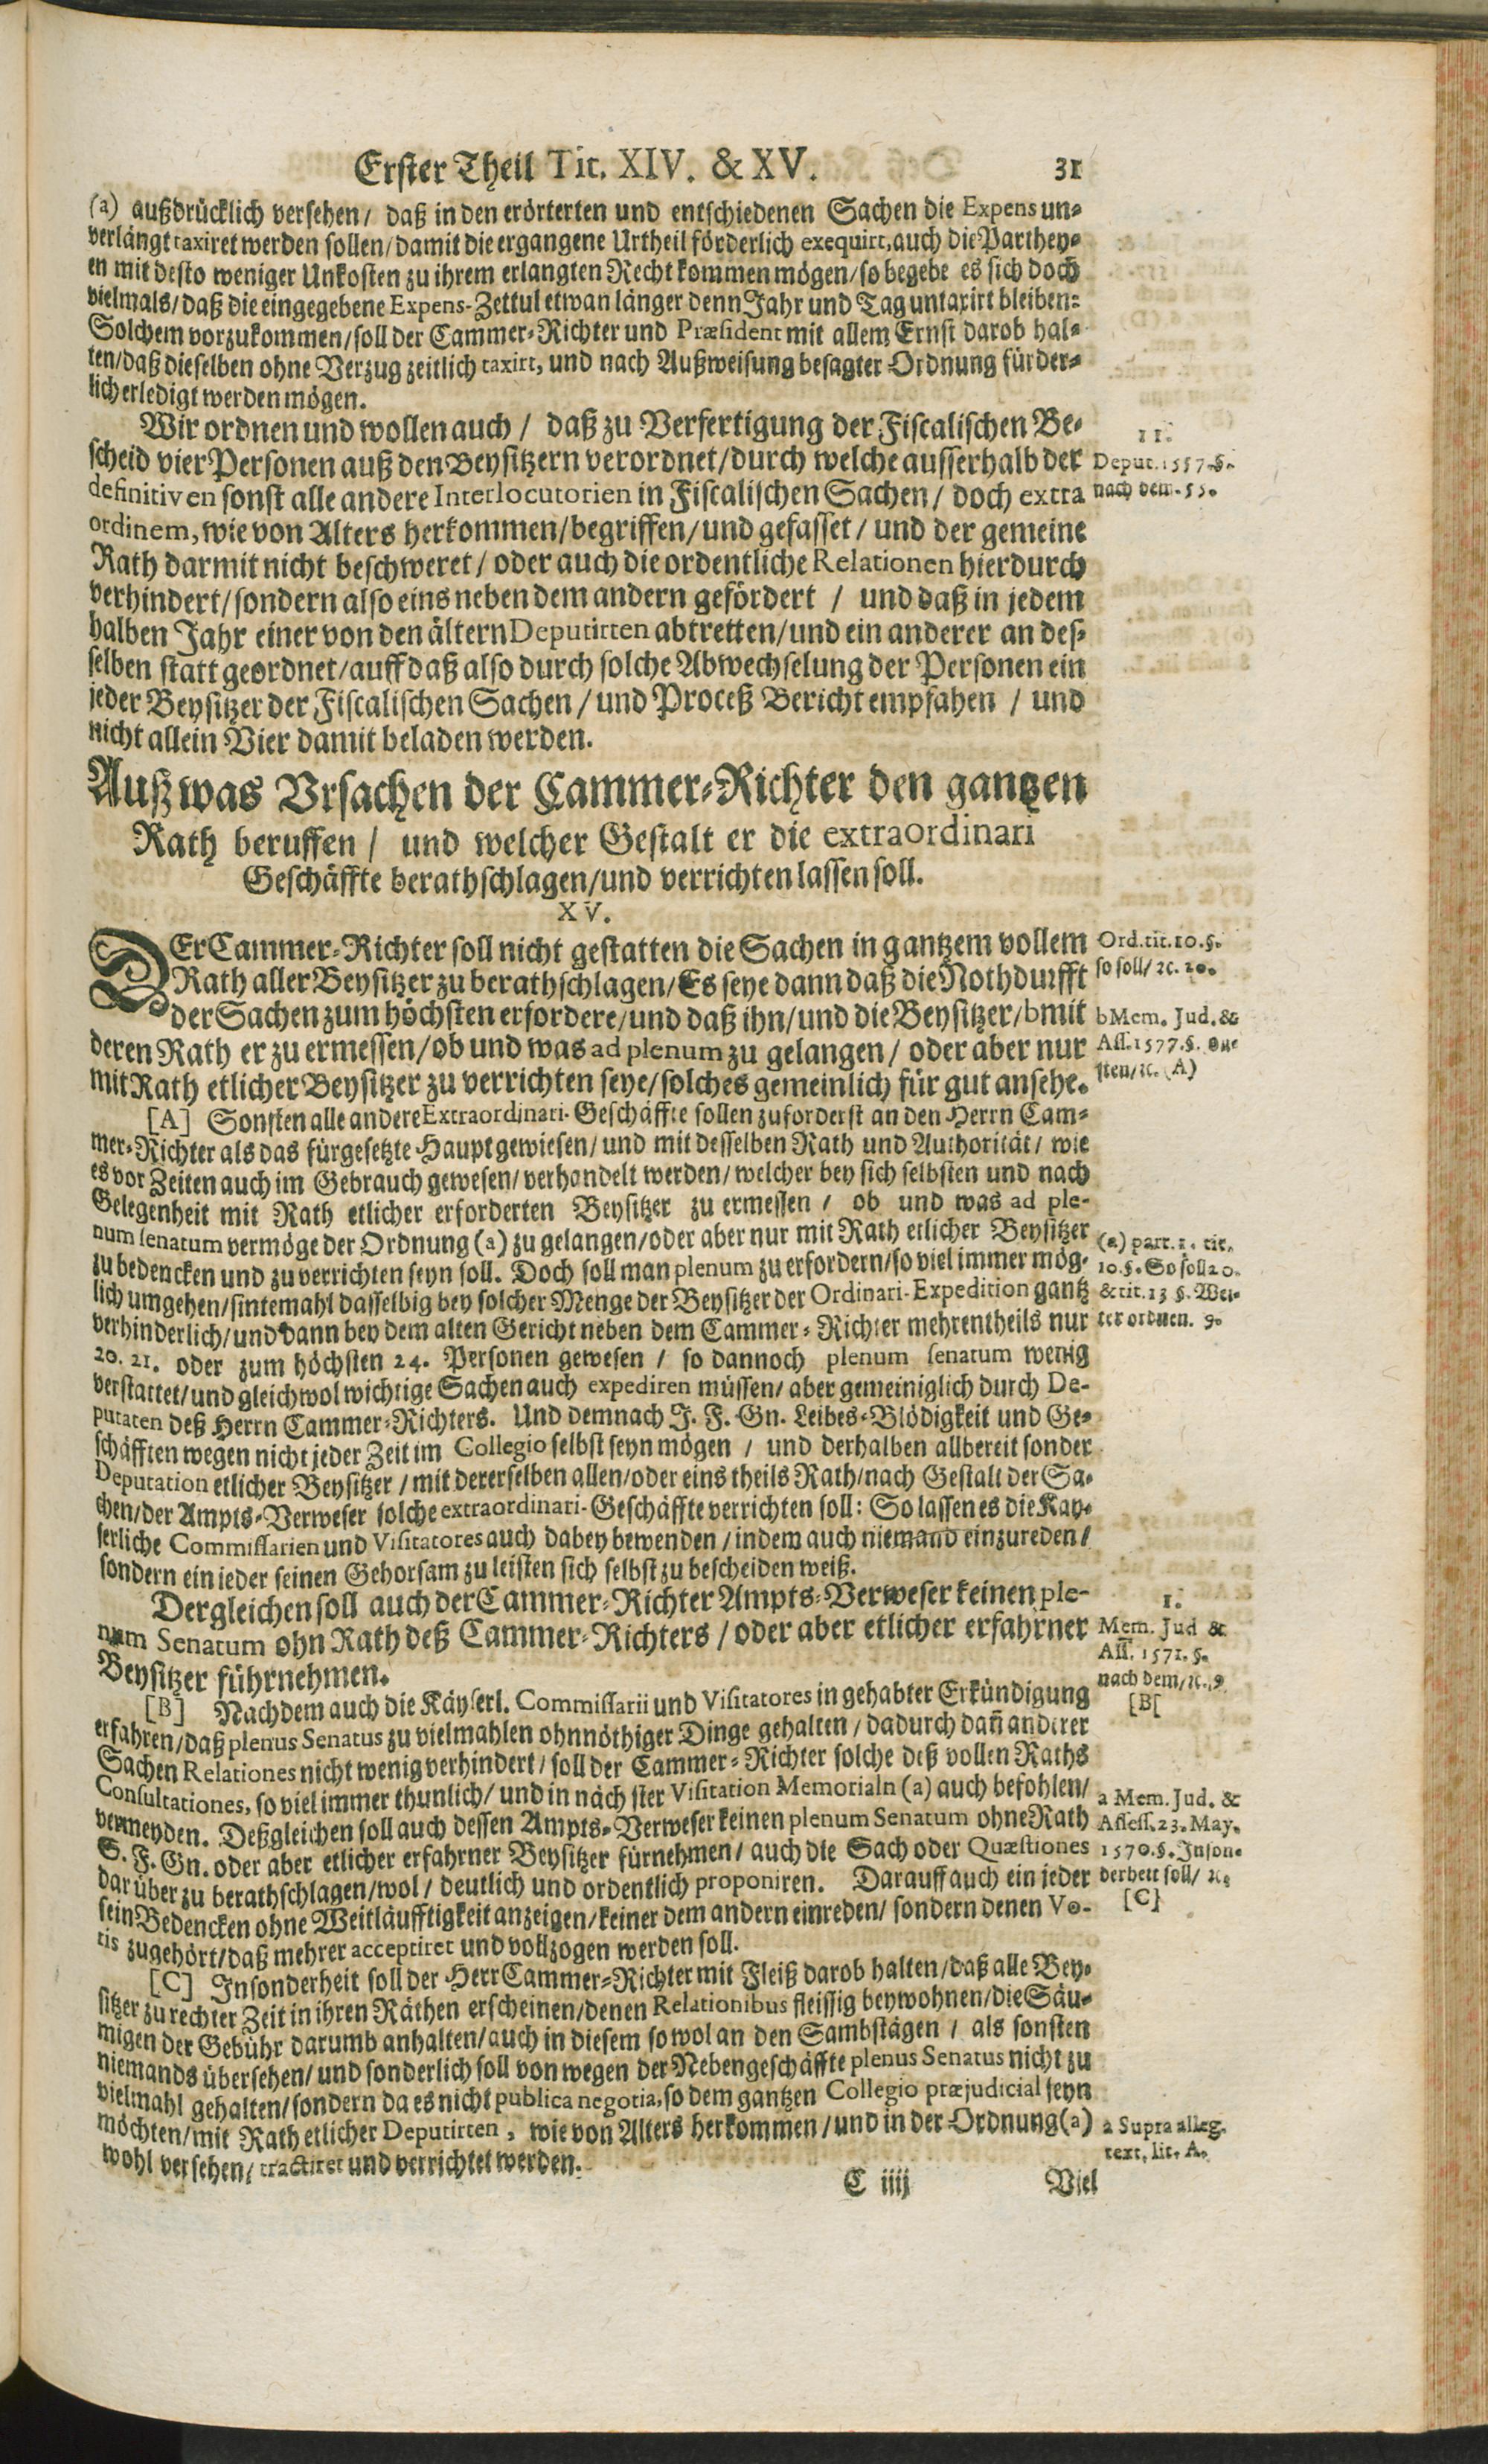 Erster Theil Tit. XIV. & XV. 31
(a) außdrücklich versehen / daß in den erörterten und entschiedenen Sachen die Expens un-
verlängt taxiret werden sollen / damit die ergangene Urtheil förderlich exequirt, auch die Parthey-
en mit desto weniger Unkosten zu ihrem erlangten Recht kommen mögen / so begebe es sich doch
vielmals / daß die eingegebene Expens-Zettul etwan länger denn Jahr und Tag untaxirt bleiben:
Solchem vorzukommen / soll der Cammer-Richter und Præsident mit allem Ernst darob hal-
ten / daß dieselben ohne Verzug zeitlich taxirt, und nach Außweisung besagter Ordnung fürder-
lich erledigt werden mögen.
Wir ordnen und wollen auch / daß zu Verfertigung der Fiscalischen Be-
scheid vier Personen auß den Beysitzern verordnet / durch welche ausserhalb der
definitiven sonst alle andere Interlocutorien in Fiscalischen Sachen / doch extra
ordinem, wie von Alters herkommen / begriffen / und gefasset / und der gemeine
Rath darmit nicht beschweret / oder auch die ordentliche Relationen hierdurch
verhindert / sondern also eins neben dem andern gefördert / und daß in jedem
halben Jahr einer von den ältern Deputirten abtretten / und ein anderer an des-
selben statt geordnet / auff daß also durch solche Abwechselung der Personen ein
jeder Beysitzer der Fiscalischen Sachen / und Proceß Bericht empfahen / und
nicht allein Vier damit beladen werden.
11.
Deput. 1557. §.
nach dem. 55.
Auß was Vrsachen der Cammer-Richter den gantzen
Rath beruffen / und welcher Gestalt er die extraordinari
Geschäffte berathschlagen / und verrichten lassen soll.
XV.
DEr Cammer-Richter soll nicht gestatten die Sachen in gantzem vollem
Rath aller Beysitzer zu berathschlagen / Es seye dann daß die Nothdurfft
der Sachen zum höchsten erfordere / und daß ihn / und die Beysitzer / b mit
deren Rath er zu ermessen / ob und was ad plenum zu gelangen / oder aber nur
mit Rath etlicher Beysitzer zu verrichten seye / solches gemeinlich für gut ansehe.
Ord. tit. 10. §.
so soll / ꝛc. 20.
b Mem. Jud. &
Ass. 1577. §.
sten / ꝛc. (A)
[A] Sonsten alle andere Extraordinari-Geschäffte sollen zuforderst an den Herrn Cam-
mer-Richter als das fürgesetzte Haupt gewiesen / und mit desselben Rath und Authorität / wie
es vor Zeiten auch im Gebrauch gewesen / verhandelt werden / welcher bey sich selbsten und nach
Gelegenheit mit Rath etlicher erforderten Beysitzer zu ermessen / ob und was ad ple-
num senatum vermöge der Ordnung (a) zu gelangen / oder aber nur mit Rath etlicher Beysitzer
zu bedencken und zu verrichten seyn soll. Doch soll man plenum zu erfordern / so viel immer mög-
lich umgehen / sintemahl dasselbig bey solcher Menge der Beysitzer der Ordinari-Expedition gantz
verhinderlich / und dann bey dem alten Gericht neben dem Cammer-Richter mehrentheils nur
20. 21. oder zum höchsten 24. Personen gewesen / so dannoch plenum senatum wenig
verstattet / und gleichwol wichtige Sachen auch expediren müssen / aber gemeiniglich durch De-
putaten deß Herrn Cammer-Richters. Und demnach J. F. Gn. Leibes-Blödigkeit und Ge-
schäfften wegen nicht jeder Zeit im Collegio selbst seyn mögen / und derhalben allbereit sonder
Deputation etlicher Beysitzer / mit dererselben allen / oder eins theils Rath / nach Gestalt der Sa-
chen / der Ampts-Verweser solche extraordinari-Geschäffte verrichten soll: So lassen es die Kay-
serliche Commissarien und Visitatores auch dabey bewenden / indem auch niemand einzureden /
sondern ein jeder seinen Gehorsam zu leisten sich selbst zu bescheiden weiß.
(a) part. 1. tit.
10. §. So soll 20.
& tit. 13 §. Wei-
ter ordnen. 9.
Dergleichen soll auch der Cammer-Richter Ampts-Verweser keinen ple-
num Senatum ohn Rath deß Cammer-Richters / oder aber etlicher erfahrner
Beysitzer führnehmen.
1.
Mem. Jud &
Ass. 1571. §.
nach dem / ꝛc. 9
[B[
[B] Nachdem auch die Käyserl. Commissarii und Visitatores in gehabter Erkündigung
erfahren / daß plenus Senatus zu vielmahlen ohnnöthiger Dinge gehalten / dadurch dañ anderer
Sachen Relationes nicht wenig verhindert / soll der Cammer-Richter solche deß vollen Raths
Consultationes, so viel immer thunlich / und in nächster Visitation Memorialn (a) auch befohlen /
vermeyden. Deßgleichen soll auch dessen Ampts-Verweser keinen plenum Senatum ohne Rath
S. F. Gn. oder aber etlicher erfahrner Beysitzer fürnehmen / auch die Sach oder Quæstiones
darüber zu berathschlagen / wol / deutlich und ordentlich proponiren. Darauff auch ein jeder
sein Bedencken ohne Weitläufftigkeit anzeigen / keiner dem andern einreden / sondern denen Vo-
tis zugehört / daß mehrer acceptiret und vollzogen werden soll.
a Mem. Jud. &
Assess. 23. May.
1570. §. Inson-
derheit soll / ꝛc.
[C]
[C] Insonderheit soll der Herr Cammer-Richter mit Fleiß darob halten / daß alle Bey-
sitzer zu rechter Zeit in ihren Räthen erscheinen / denen Relationibus fleissig beywohnen / die Säu-
migen der Gebühr darumb anhalten / auch in diesem so wol an den Sambstägen / als sonsten
niemands übersehen / und sonderlich soll von wegen der Nebengeschäffte plenus Senatus nicht zu
vielmahl gehalten / sondern da es nicht publica negotia, so dem gantzen Collegio præjudicial seyn
möchten / mit Rath etlicher Deputirten, wie von Alters herkommen / und in der Ordnung (a)
wohl versehen / tractiret und verrichtet werden.
a Supra alleg.
text. lit. A.
C iiij Viel